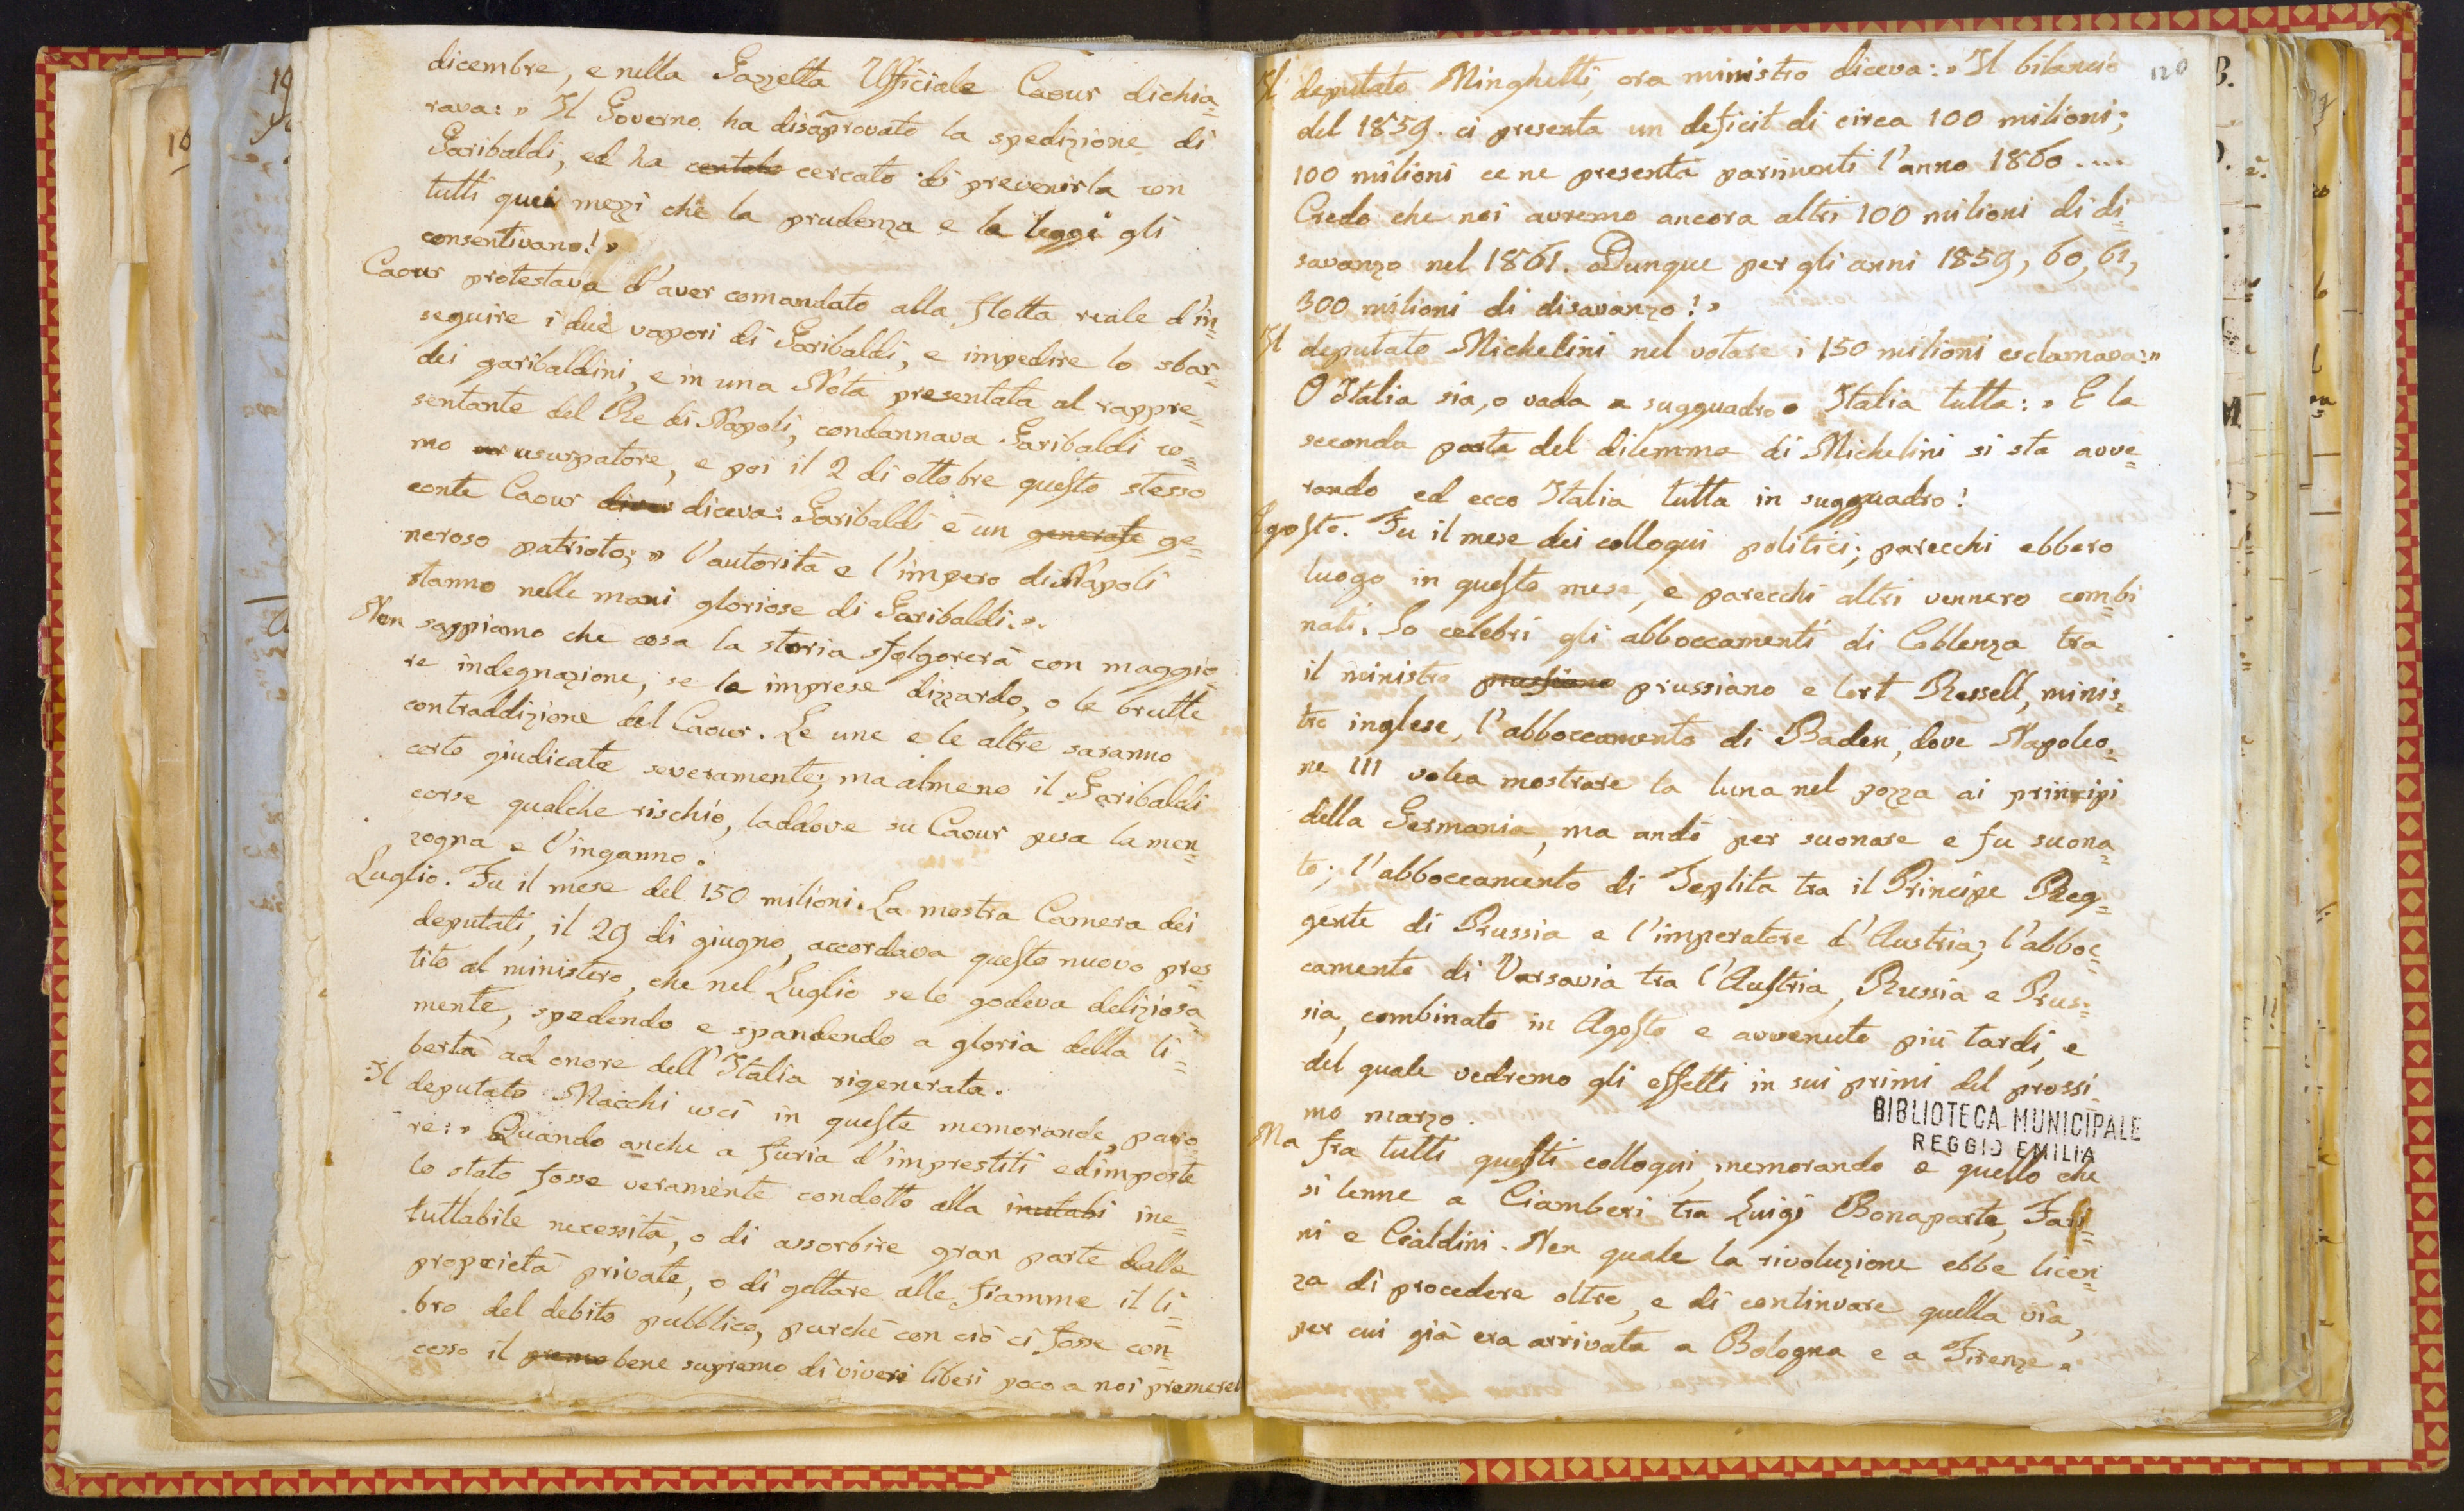 dicembre, e nella Gazzetta Ufficiale Caour dichia=
rava: » Il Governo ha disaprovato la spedizione di
Garibaldi, ed ha contato cercato di prevenirla con
tutti quei mezzi che la prudenza e le leggi gli
consentivano! »
Caour protestava d'aver comandato alla flotta reale d'in=
seguire i due vapori di Garibaldi, e impedire lo sbar=
dei garibaldini, e in una Nota presentata al rappre=
sentante del Re di Napoli, condannava Garibaldi co=
mo ur usurpatore, e poi il 2 di ottobre questo stesso
conte Caour diver diceva: Garibaldi è un generale ge=
neroso patrioto; » l'autorità e l'impero di Napoli
stanno nelle mani gloriose di Garibaldi. ».
Non sappiamo che cosa la storia sfolgorerà con maggio=
re indegnazione, se le imprese dizzardo, o le brutte
contraddizione del Caour. Le une e le altre saranno
certo giudicate severamente; ma almeno il Garibaldi
corse qualche rischio, laddove su Caour pesa la men=
zogna e l'inganno.
Luglio. Fu il mese del 150 milioni. La mostra Camera dei
deputati, il 29 di giugno, accordava questo nuovo pres
tito al ministero, che nel Luglio se lo godeva deliziosa=
mente, spedendo e spandendo a gloria della li=
bertà ad onore dell'Italia rigenerata.
Il deputato Macchi uscì in queste memorande paro
re: » Quando anche a furia d'imprestiti ed imposte
lo stato fosse veramente condotto alla inutabi ine=
luttabile necessità, o di assorbire gran parte dalle
proprietà private, o di gettare alle fiamme il li=
bro del debito pubblico, purchè con ciò ci fosse con=
cesso il premo bene supremo di viveri liberi poco a noi premereb
120
Il deputato Minghetti, ora ministro diceva: » Il bilancio
del 1859. ci presenta un deficit di circa 100 milioni;
100 milioni ce ne presenta parimenti l'anno 1860....
Credo che noi avremo ancora altri 100 milioni di di=
savanzo nel 1861. Dunque per gli anni 1859, 60, 61,
300 milioni di disavanzo! »
Il deputato Michelini nel votare i 150 milioni esclamava: »
O Italia sia, o vada a sugguadro Italia tutta: » E la
seconda parte del dilemma di Michelini si sta avve=
rando ed ecco Italia tutta in sugguadro!
Agosto. Fu il mese dei colloqui politici; parecchi ebbero
luogo in questo mese, e parecchi altri vennero combi
nati. So celebri gli abboccamenti di Coblenza tra
il ministro prussiano prussiano e lort Ressell, minis=
tro inglese, l'abboccamento di Baden, dove Napoleo=
ne III volea mostrare la luna nel pozza ai principi
della Germania, ma andò per suonare e fu suona=
to; l'abboccamento di Teplita tra il Principe Reg=
gente di Prussia e l'imperatore d'Austria; l'abboc=
camento di Varsavia tra l'Austria, Russia e Prus=
sia, combinato in Agosto e avvenuto più tardi, e
del quale vedremo gli effetti in sui primi del prossi=
mo marzo.
BIBLIOTECA MUNICIPALE
REGGIO EMILIA
Ma fra tutti questi colloqui, memorando e quello che
si tenne a Ciamberi tra Luigi Bonaparte, Fari=
ni e Cialdini. Nen quale la rivoluzione ebbe licen=
za di procedere oltre, e di continuare quella via,
per cui già era arrivata a Bologna e a Firenze.